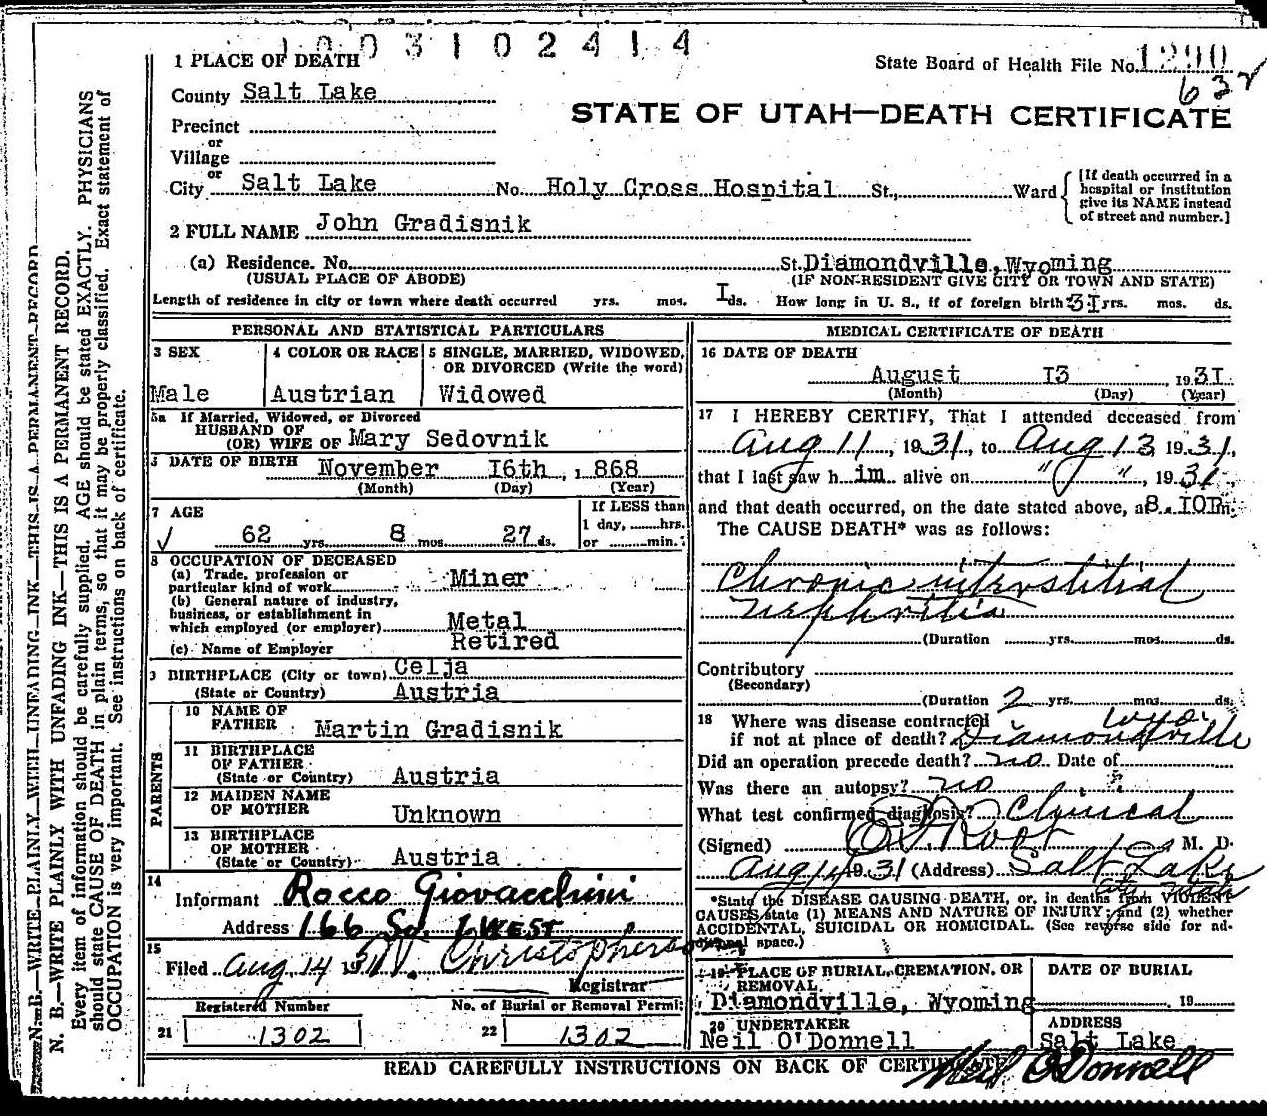 1003102414
State Board of Health File No. 1290
632
1 PLACE OF DEATH
County Salt Lake
STATE OF UTAH—DEATH CERTIFICATE
Precinct
or
Village
or
City Salt Lake No. Holy Cross Hospital St., Ward
[If death occurred in a
hospital or institution
give its NAME instead
of street and number.]
2 FULL NAME John Gradisnik
(a) Residence. No. St. Diamondville, Wyoming
(USUAL PLACE OF ABODE) (IF NON-RESIDENT GIVE CITY OR TOWN AND STATE)
Length of residence in city or town where death occurred yrs. mos. I ds. How long in U. S., if of foreign birth 3I yrs. mos. ds.
PERSONAL AND STATISTICAL PARTICULARS
3 SEX
Male
4 COLOR OR RACE
Austrian
5 SINGLE, MARRIED, WIDOWED,
OR DIVORCED (Write the word)
Widowed
5a If Married, Widowed, or Divorced
HUSBAND OF
(OR) WIFE OF Mary Sedovnik
6 DATE OF BIRTH November I6th, 1868
(Month) (Day) (Year)
7 AGE
62 yrs. 8 mos. 27 ds.
If LESS than
1 day, hrs.
or min.
8 OCCUPATION OF DECEASED
(a) Trade, profession or
particular kind of work Miner
(b) General nature of industry,
business, or establishment in
which employed (or employer) Metal
(c) Name of Employer Retired
9 BIRTHPLACE (City or town) Celja
(State or Country) Austria
PARENTS
10 NAME OF
FATHER Martin Gradisnik
11 BIRTHPLACE
OF FATHER
(State or Country) Austria
12 MAIDEN NAME
OF MOTHER Unknown
13 BIRTHPLACE
OF MOTHER
(State or Country) Austria
14
Informant Rocco Giovacchini
Address 166 So. 1 WEST
15
Filed Aug 14 1931 Christopherson
Registrar
Registered Number
21 1302
No. of Burial or Removal Permit
22 1302
MEDICAL CERTIFICATE OF DEATH
16 DATE OF DEATH
August I3, 193I
(Month) (Day) (Year)
17 I HEREBY CERTIFY, That I attended deceased from
Aug 11, 1931, to Aug 13, 1931,
that I last saw h im alive on " " , 1931,
and that death occurred, on the date stated above, at 8.I0Pm.
The CAUSE DEATH* was as follows:
Chronic interstitial
nephritis
(Duration yrs. mos. ds.
Contributory
(Secondary)
(Duration 2 yrs. mos. ds.
18 Where was disease contracted
if not at place of death? Diamondville Wyo.
Did an operation precede death? no Date of
Was there an autopsy? no
What test confirmed diagnosis? Clinical
(Signed) Root M. D.
Aug 14 1931 (Address) Salt Lake
City Utah
*State the DISEASE CAUSING DEATH, or, in deaths from VIOLENT
CAUSES state (1) MEANS AND NATURE OF INJURY; and (2) whether
ACCIDENTAL, SUICIDAL OR HOMICIDAL. (See reverse side for ad-
ditional space.)
19 PLACE OF BURIAL, CREMATION, OR
REMOVAL
Diamondville, Wyoming
DATE OF BURIAL
19
20 UNDERTAKER
Neil O'Donnell
ADDRESS
Salt Lake
READ CAREFULLY INSTRUCTIONS ON BACK OF CERTIFICATE
Neil O'Donnell
N. B.—WRITE PLAINLY WITH UNFADING INK—THIS IS A PERMANENT RECORD
N. B.—WRITE PLAINLY WITH UNFADING INK—THIS IS A PERMANENT RECORD.
Every item of information should be carefully supplied. AGE should be stated EXACTLY. PHYSICIANS
should state CAUSE OF DEATH in plain terms, so that it may be properly classified. Exact statement of
OCCUPATION is very important. See instructions on back of certificate.